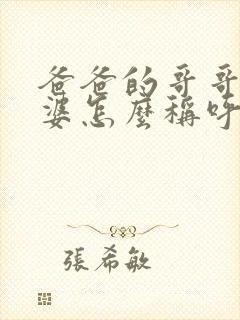 爸爸的哥哥
婆怎麼稱呼
張希敏